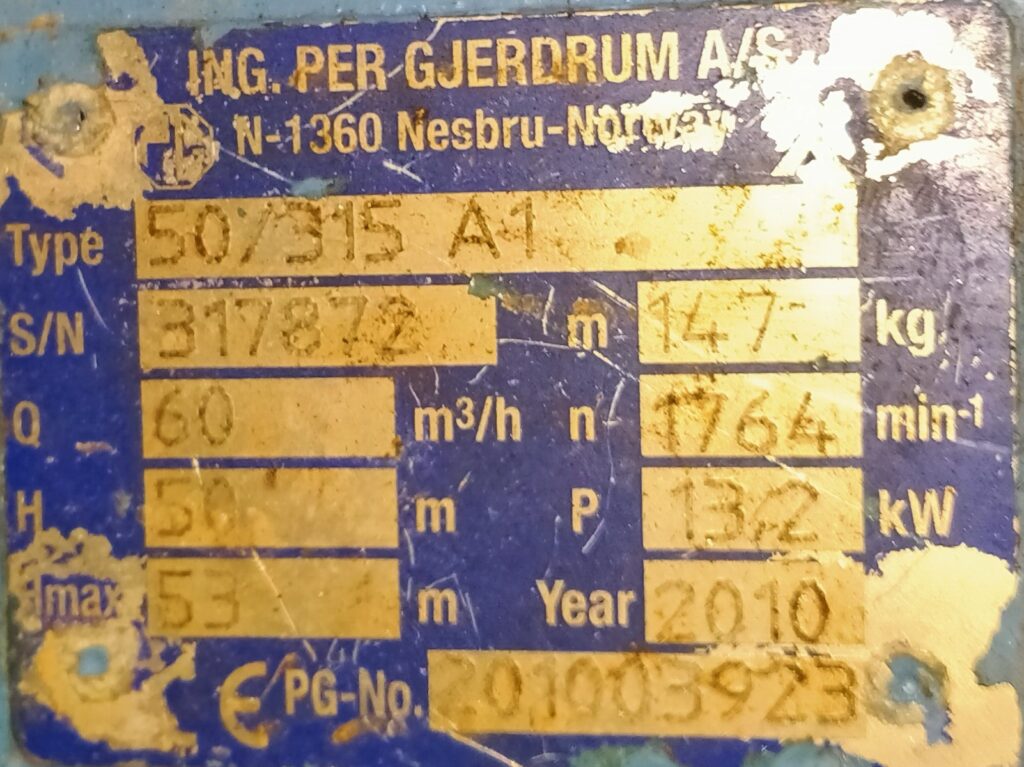 ING. PER GJERDRUM A/S
N-1360 Nesbru-Norway
Type 50/315 A1
S/N 317872 m 147 kg
Q 60 m³/h n 1764 min-1
H 50 m P 13,2 kW
Hmax 53 m Year 2010
CE PG-No. 201003923